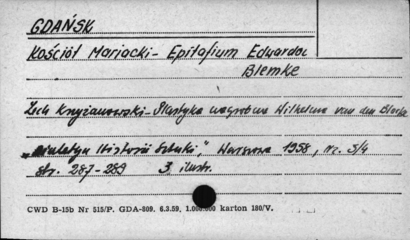 GDAŃSK
Kościół Mariacki - Epitafium Edwarda
Blemke
Lech Krzyżanowski - Plastyka nagrobna Wilhelma van den Blocke
„Biuletyn Historii Sztuki”, Warszawa 1958, nr. 3/4
str. 287-289 3 ilustr.
CWD B-15b Nr 515/P. GDA-809. 6.3.59, 1.000.000 karton 180/V.